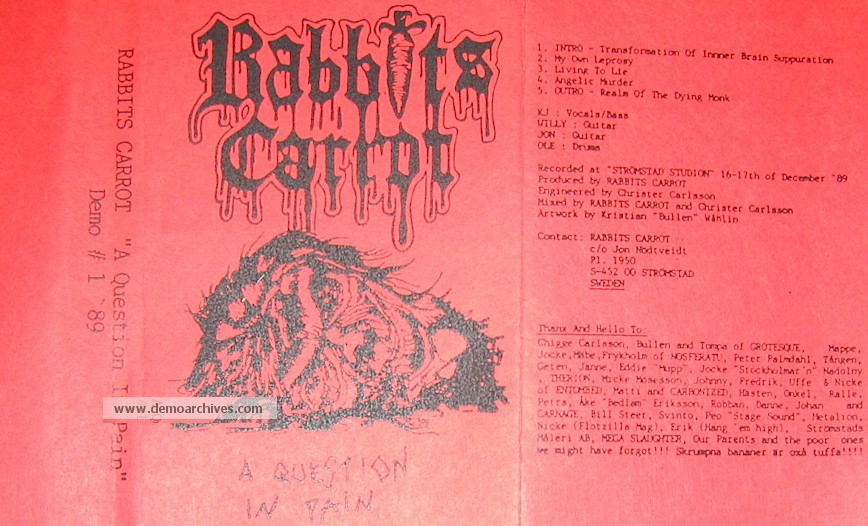 RABBITS CARROT "A Question I Pain"
Demo # 1 '89
Rabbits
Carrot
A QUESTION
IN PAIN
www.demoarchives.com
1. INTRO - Transformation Of Innner Brain Suppuration
2. My Own Leprosy
3. Living To Lie
4. Angelic Murder
5. OUTRO - Realm Of The Dying Monk
KJ : Vocals/Bass
WILLY : Guitar
JON : Guitar
OLE : Drums
Recorded at "STRÖMSTAD STUDION" 16-17th of December '89
Produced by RABBITS CARROT
Engineered by Christer Carlsson
Mixed by RABBITS CARROT and Christer Carlsson
Artwork by Kristian "Bullen" Wåhlin
Contact: RABBITS CARROT
c/o Jon Nödtveidt
Pl. 1950
S-452 00 STRÖMSTAD
SWEDEN
Thanx And Hello To:
Chigge Carlsson, Bullen and Tompa of GROTESQUE, Mappe,
Jocke, Måbe, Frykholm of NOSFERATU, Peter Palmdahl, Tången,
Geten, Janne, Eddie "Hupp", Jocke "Stockholmar'n" Nadolny
, THERION, Micke Mosesson, Johnny, Fredrik, Uffe & Nicke
of ENTOMBED, Matti and CARBONIZED, Hästen, Onkel, Ralle,
Petra, Åke "Bedlam" Eriksson, Robban, Danne, Johan and
CARNAGE, Bill Steer, Svinto, Peo "Stage Sound", Metalion,
Nicke (Flotzilla Mag), Erik (Hang 'em high), Strömstads
Måleri AB, MEGA SLAUGHTER, Our Parents and the poor ones
we might have forgot!!! Skrumpna bananer är oxå tuffa!!!!